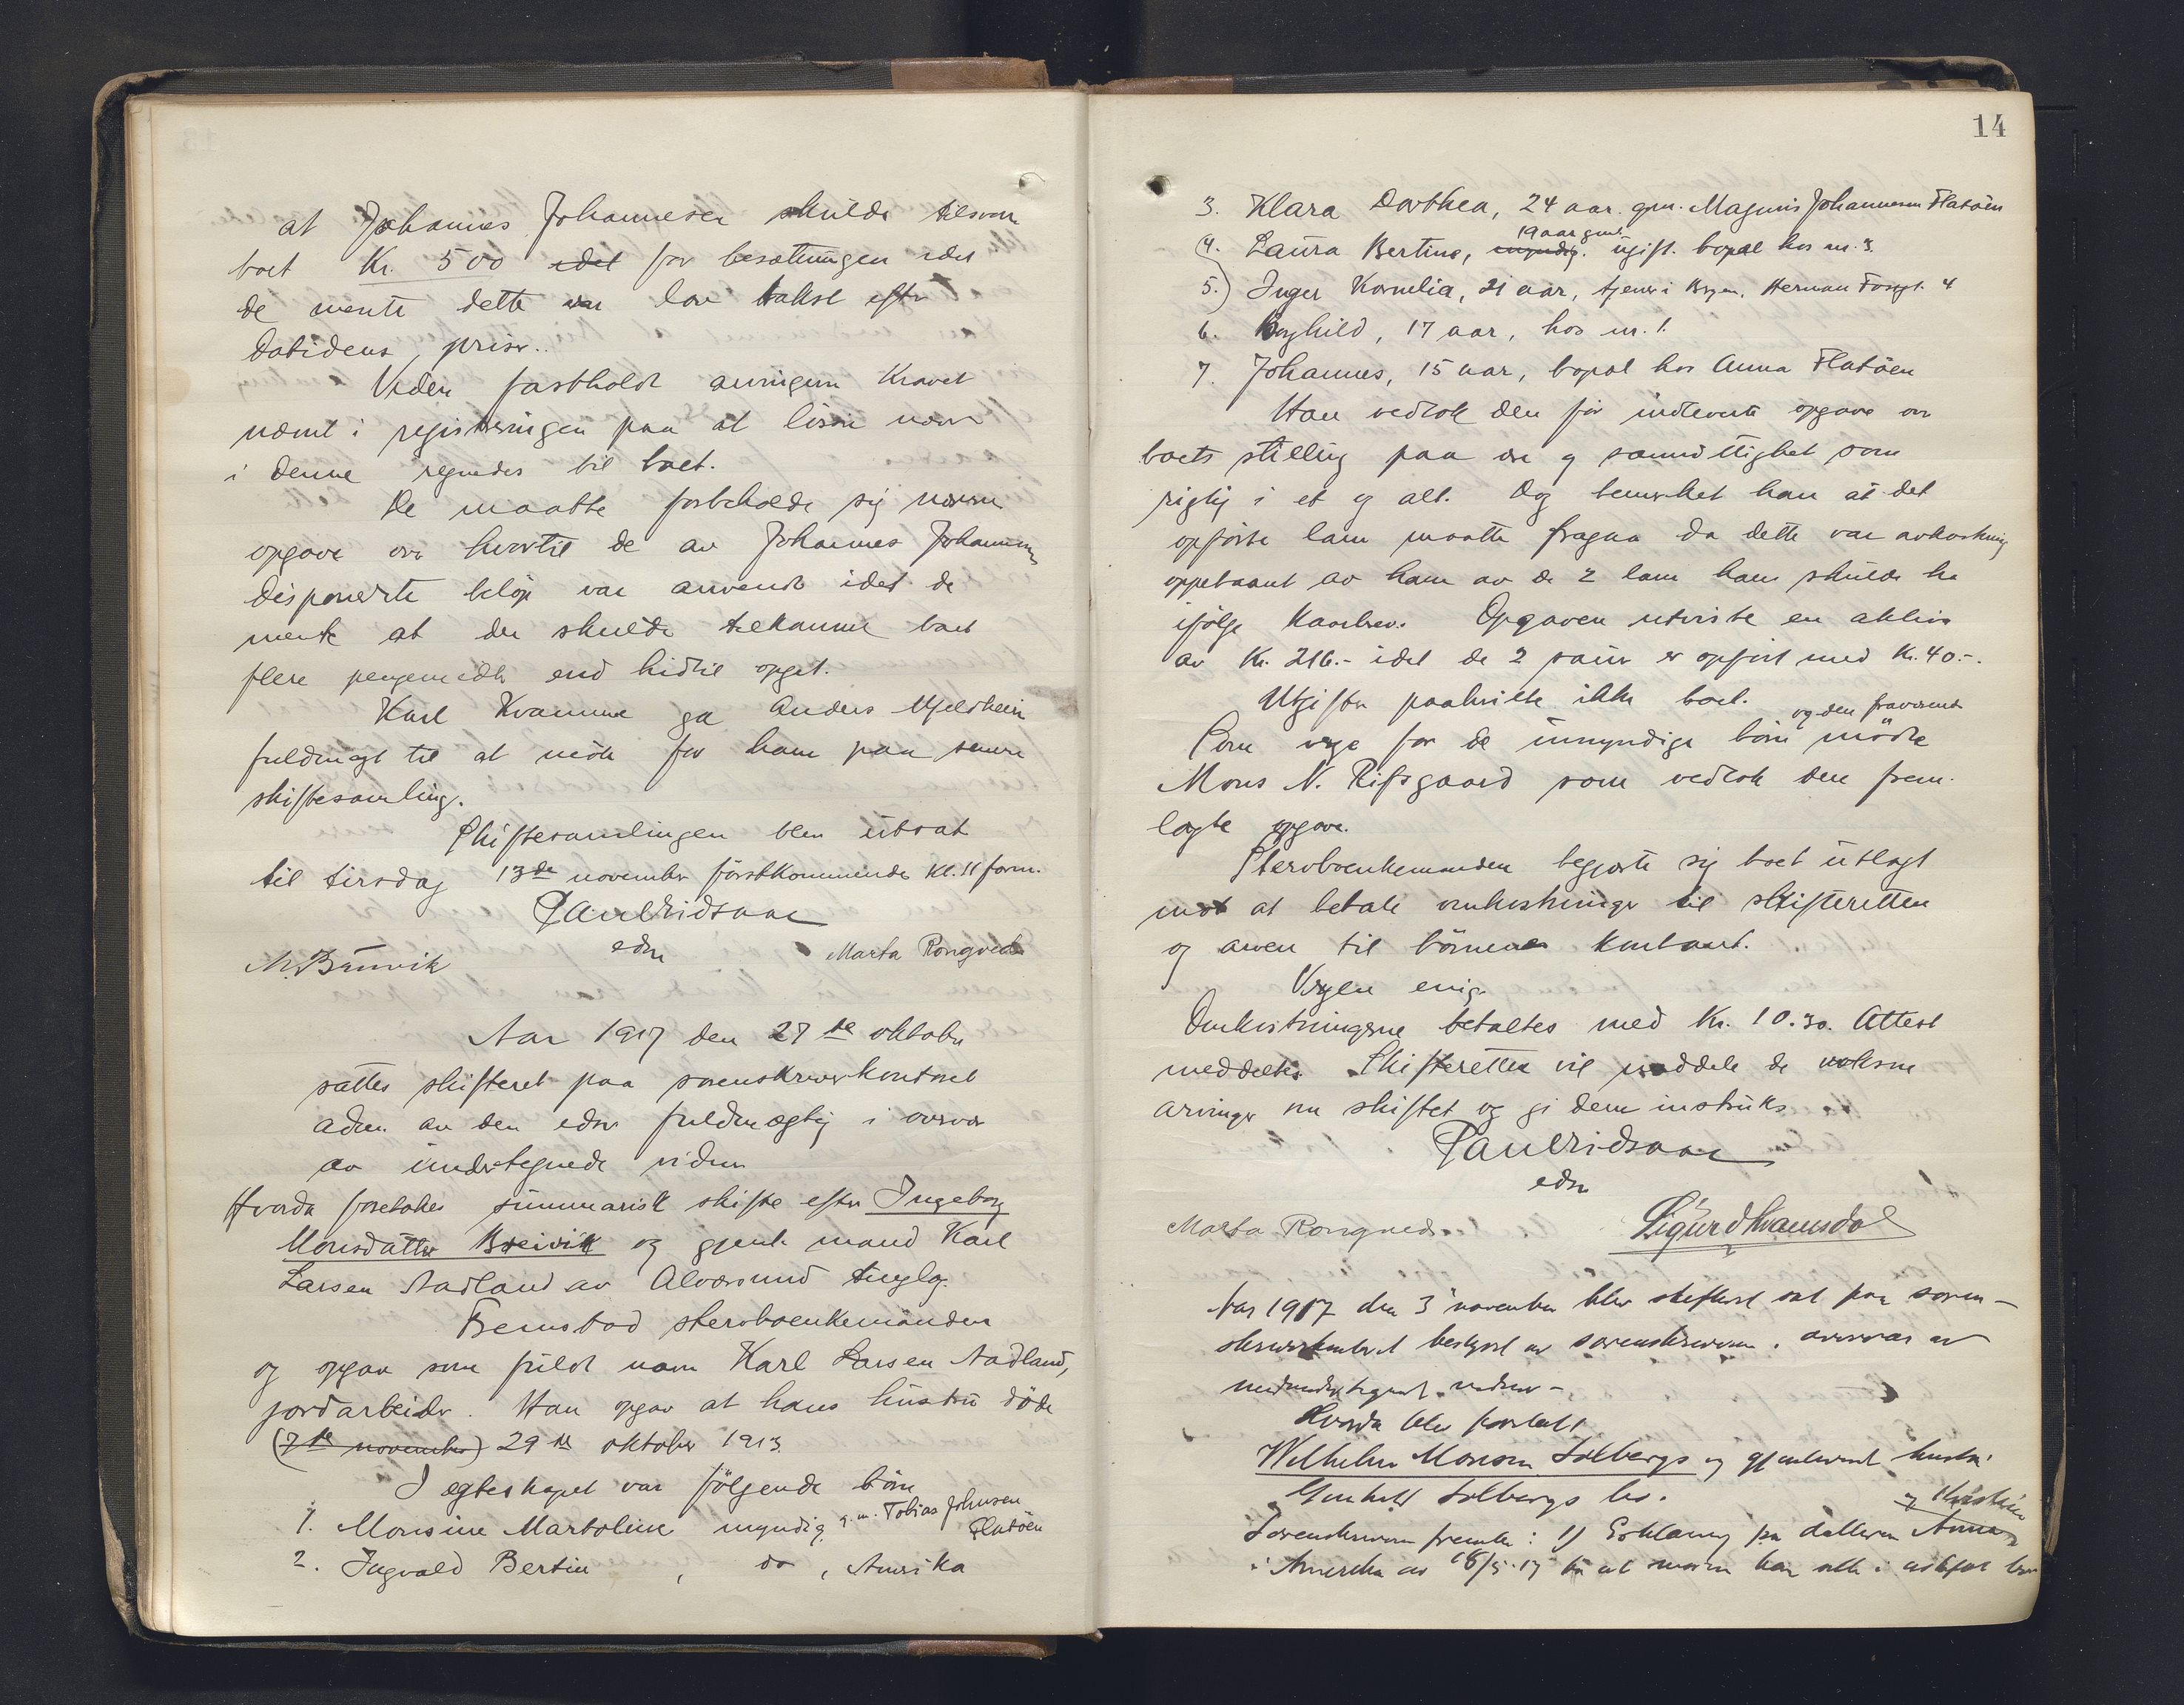 at Johannes Johannesen skulde tilsvare
boet Kr. 500 idet for besætningen idet
de mente dette var lav takst efter
datidens priser.
Videre fastholdt arvingene kravet
nævnt i registreringen paa at løsøre nævnt
i denne regnedes til boet.
De maatte forbeholde sig nærmere
opgave over hvortil de av Johannes Johannesen
disponerte beløp var anvendt idet de
mente at der skulde tilkomme boet
flere pengemidler end hidtil opget.
Karl Kvamme ga Anders Mjeldheim
fuldmagt til at møte for ham paa senere
skiftesamling.
Skiftesamlingen blev utsat
til tirsdag 13de november førstkommende kl. 11 form.
Paul Kridsaae
edsv
M. Brunvik Marta Rongved
Aar 1917 den 27de oktober
sattes skifteret paa sorenskriverkontoret
adm. av den edsv fuldmægtig i overvær
av undertegnede vidner
Hvorda foretokes summarisk skifte efter Ingeborg
Monsdatter Breivik og gjenl. mand Karl
Larsen Aadland av Alversund tinglag.
Fremstod stervboenkemanden
og opgav som fuldt navn Karl Larsen Aadland,
jordarbeider. Han opgav at hans hustru døde
(7de november) 29de oktober 1913.
I egteskapet var følgende børn
1. Monsine Martoline myndig g.m. Tobias Johnsen
Flatöen
2. Ingvald Bertin , do , Amerika
14
3. Klara Dorthea, 24 aar. gm. Magnus Johannesen Flatöen
19 aar gml.
4. Laura Bertine, myndig. ugift. bopæl hos nr. 3.
5. Inger Kornelia, 21 aar, tjener i Bergen, Herman Fosgt. 4
6. Borghild, 17 aar, hos nr. 1.
7. Johannes, 15 aar, bopæl hos Anna Flatöen
Han vedtok den før indleverte opgave over
boets stilling paa ære og samvittighet som
rigtig i et og alt. Dog bemerket han at det
opførte lam maatte fragaa da dette var avkastning
oppebaaret av ham av de 2 lam han skulde ha
ifølge kaarbrev. Opgaven utviste en aktiva
av Kr. 216.- idet de 2 sauer er opført med Kr. 40.-.
Utgifter paahvilte ikke boet.
og den fraværende
Som verge for de umyndige børn mødte
Mons N. Rifsgaard som vedtok den frem-
lagte opgave.
Stervboenkemanden begjærte sig boet utlagt
mot at betale omkostninger til skifteretten
og arven til børnene kontant.
Vergen enig.
Omkostningerne betaltes med Kr. 10.30. Attest
meddeeltes. Skifteretten vil meddele de voksne
arvinger om skiftet og gi dem instruks.
Paul Kridsaae
edsv
Marta Rongved Sigurd Kvamsdal
Aar 1917 den 3 november blev skifteret sat paa soren-
skriverkontoret bestyret av sorenskriveren i overvær av
nedenundertegnede vidner -
Hvorda blev foretatt
Wilhelm Monsen Solbergs og gjenlevende hustru
Gunhild Solbergs bo.
og Kristine
Sorenskriveren fremla: 1) Erklæring fra datteren Anna
i Amerika av 18/5-17 til at moren kan sitte i uskiftet bo